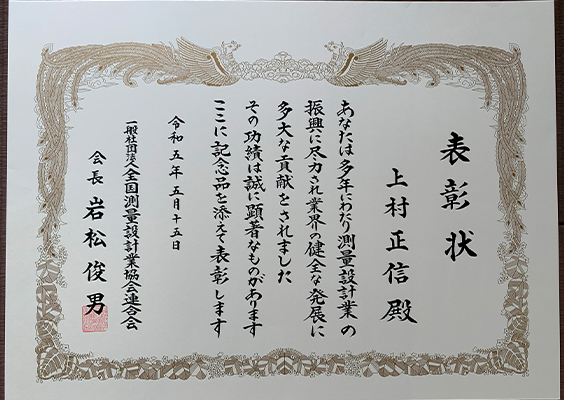 表彰状
上村正信殿
あなたは多年にわたり測量設計業の
振興に尽力され業界の健全な発展に
多大な貢献をされました
その功績は誠に顕著なものがあります
ここに記念品を添えて表彰します
令和五年五月十五日
一般社団法人全国測量設計業協会連合会
会長 岩松俊男